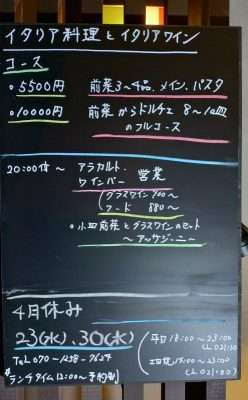 イタリア料理とイタリアワイン
コース
・5500円 前菜3〜4品、メイン、パスタ
・10000円 前菜からドルチェ 8〜10皿
のフルコース
20:00頃〜 アラカルト、
ワインバー 営業
(グラスワイン 700〜
フード 880〜)
・小皿前菜とグラスワインのセット
〜アッサジーニ〜
4月休み
23(水)、30(水)
(平日 18:00〜23:00
TEL 070-1258-7624
ランチタイム 12:00〜 予約制